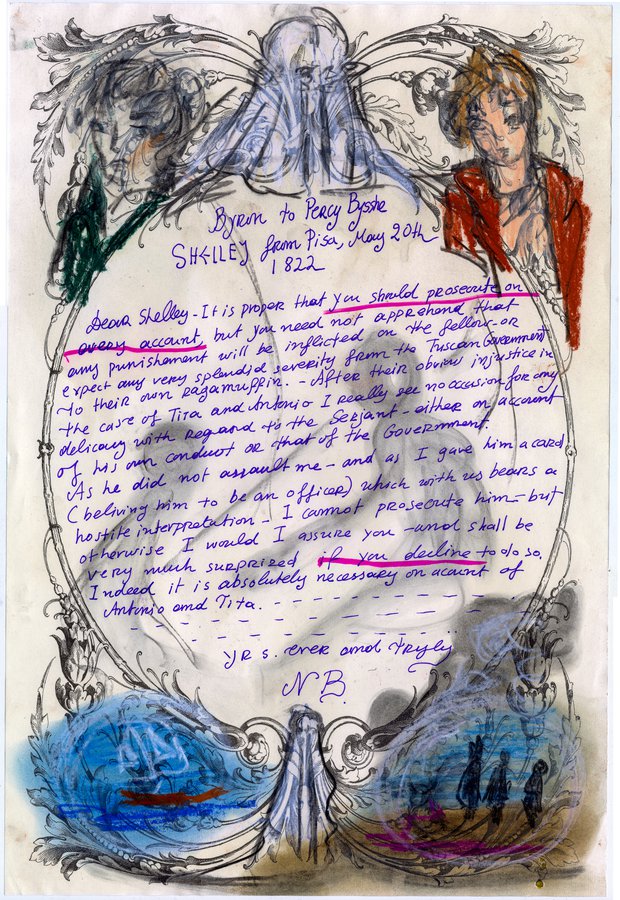 Byron to Percy Bysshe
SHELLEY from Pisa, May 20th
1822
Dear Shelley - It is proper that you should prosecute on
every account but you need not apprehend that
any punishement will be inflicted on the fellow - or
expect any very splendid severity from the Tuscan Government
to their own ragamuffin. - After their obvious injustice in
the case of Tita and Antonio I really see no occasion for any
delicacy with regard to the Serjant - either on account
of his own conduct or that of the Government.
As he did not assault me - and as I gave him a card
(beliving him to be an officer) which with us bears a
hostile interpretation - I cannot prosecute him - but
otherwise I would I assure you - and shall be
very much surprized if you decline to do so,
Indeed it is absolutely necessary on acount of
Antonio and Tita. - - - - - - - -
yrs. ever and truly
NB.